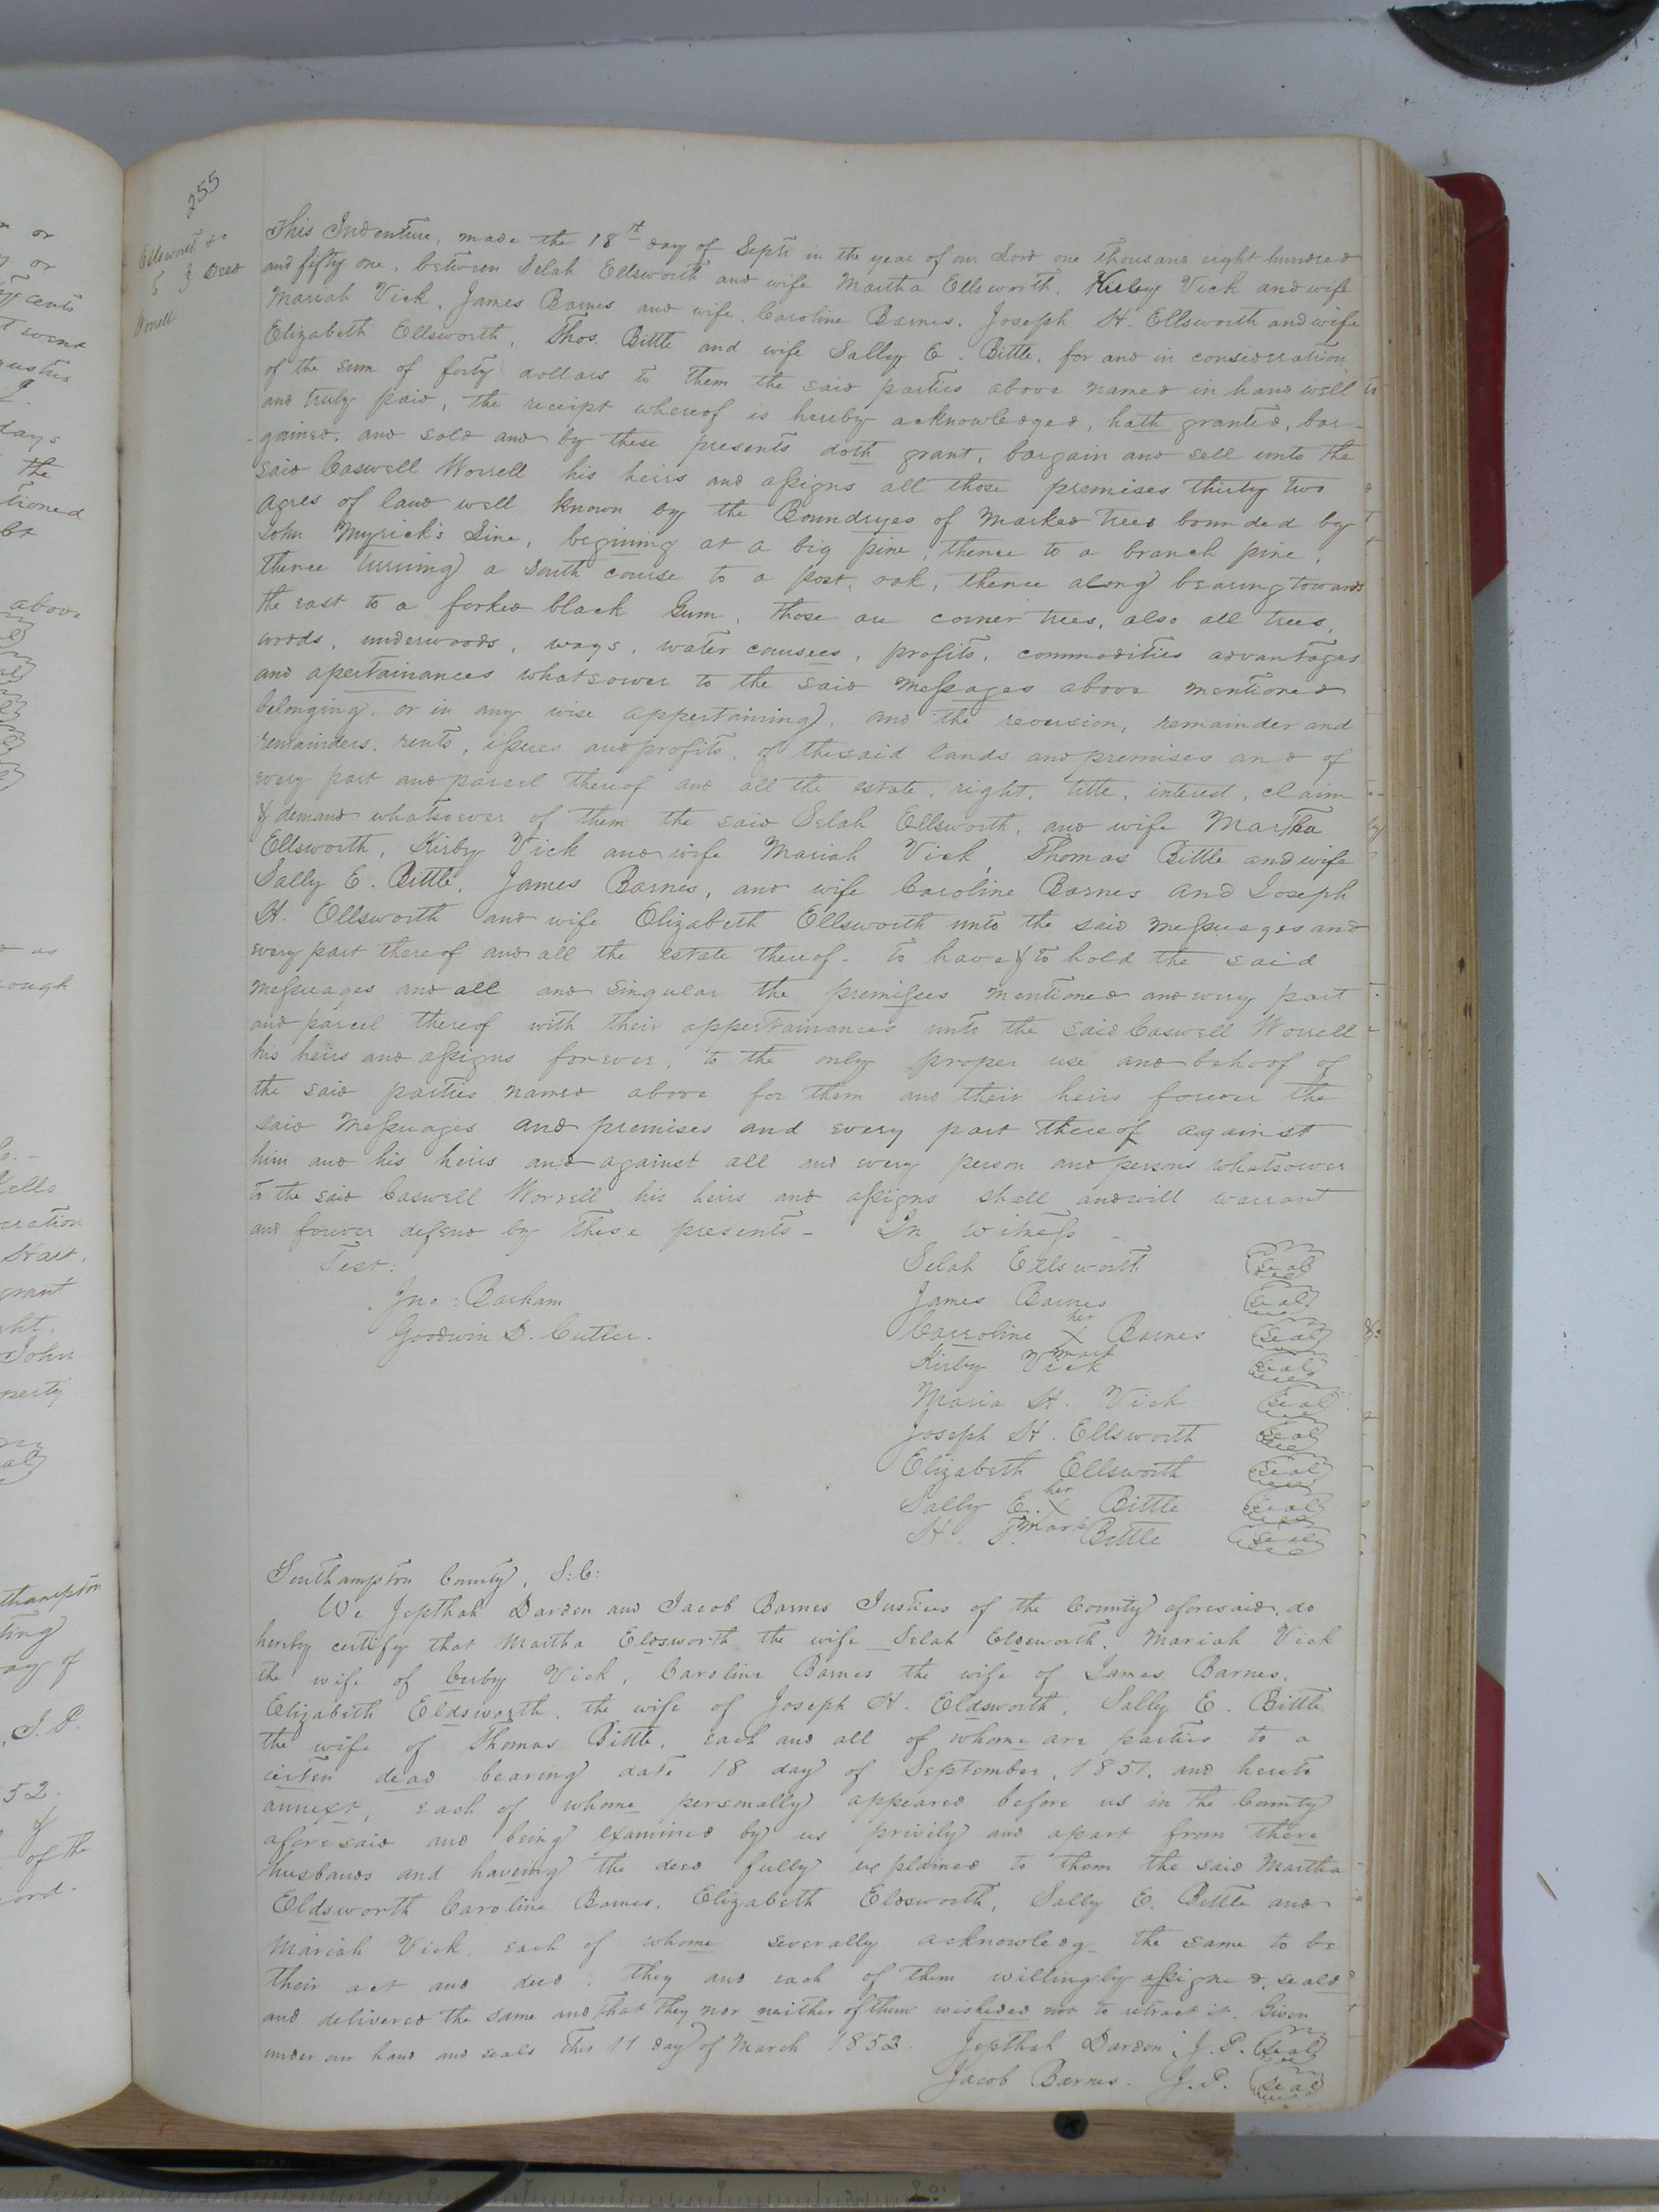 255
Ellsworth &c
to } Deed
Worrell
This Indenture, made the 18th day of Septr in the year of our Lord one thousand eight hundred
and fifty one, between Selah Ellsworth and wife Martha Ellsworth, Kirby Vick and wife
Mariah Vick, James Barnes and wife, Caroline Barnes, Joseph H. Ellsworth and wife
Elizabeth Ellsworth, Thos. Bittle and wife Sally E. Bittle, for and in consideration
of the sum of forty dollars to them the said parties above named in hand well
and truly paid, the receipt whereof is hereby acknowledged, hath granted, bar-
-gained, and sold and by these presents doth grant, bargain and sell unto the
said Caswell Worrell his heirs and assigns all those premises thirty two
agres of land well known by the Boundryes of marked trees bounded by
John Myrick's Line, begining at a big pine, thence to a branch pine,
thence running a South course to a post oak, thence along bearing towards
the east to a forked black Gum, those are corner trees, also all trees,
woods, underwoods, ways, water coursees, profits, commodities advantages
and apertainances whatsower to the said messages above mentioned
belonging, or in any wise appertaining, and the reversion, remainder and
remainders, rents, issues and profits, of the said lands and premises and of
every part and parcel thereof and all the estate, right, title, interest, claim
& demand whatsoever of them the said Selah Ellsworth, and wife Martha
Ellsworth, Kirby Vick and wife Mariah Vick, Thomas Bittle and wife
Sally E. Bittle, James Barnes, and wife Caroline Barnes and Joseph
H. Ellsworth and wife Elizabeth Ellsworth unto the said messuages and
every part thereof and all the estate thereof - To have & to hold the said
messuages and all and singular the premisses mentioned and every part
and parcel thereof with their appertainances unto the said Caswell Worrell
his heirs and assigns forever, to the only proper use and behoof of
the said parties named above for them and their heirs forever the
said messuages and premises and every part thereof against
him and his heirs and against all and every person and persons whatsower
to the said Caswell Worrell his heirs and assigns shall and will warrant
and forever defend by these presents - In witness -
Test:
Jno: Barham
Goodwin D. Cutler.
Selah Ellsworth Seal
James Barnes Seal
Carroline her X mark Barnes Seal
Kirby Vick Seal
Maria H. Vick Seal
Joseph H. Ellsworth Seal
Elizabeth Ellsworth Seal
Sally E. her X mark Bittle Seal
H. T. Bittle Seal
Southampton County, S:C:
We Jepthah Darden and Jacob Barnes Justices of the County aforesaid, do
hereby certify that Martha Eldsworth the wife Selah Eldsworth, Mariah Vick
the wife of Curby Vick, Caroline Barnes the wife of James Barnes,
Elizabeth Eldsworth, the wife of Joseph H. Eldsworth, Sally E. Bittle
the wife of Thomas Bittle, each and all of whome are parties to a
certen dead bearing date 18 day of September, 1851, and hereto
annext, each of whome personally appeared before us in the County
aforesaid and being examined by us privily and apart from there
husbands and haveing the deed fully explained to them the said Martha
Eldsworth Caroline Barnes, Elizabeth Eldsworth, Sally E. Bittle and
Mariah Vick each of whome severally acknowledg the same to be
their act and deed, they and each of them willingly assigned, seald
and delivered the same and that they nor neither of them wisheded not to retract it. Given
under our hand and seals This 11 day of March 1852. Jepthah Darden, J.P. Seal
Jacob Barnes. J.P. Seal